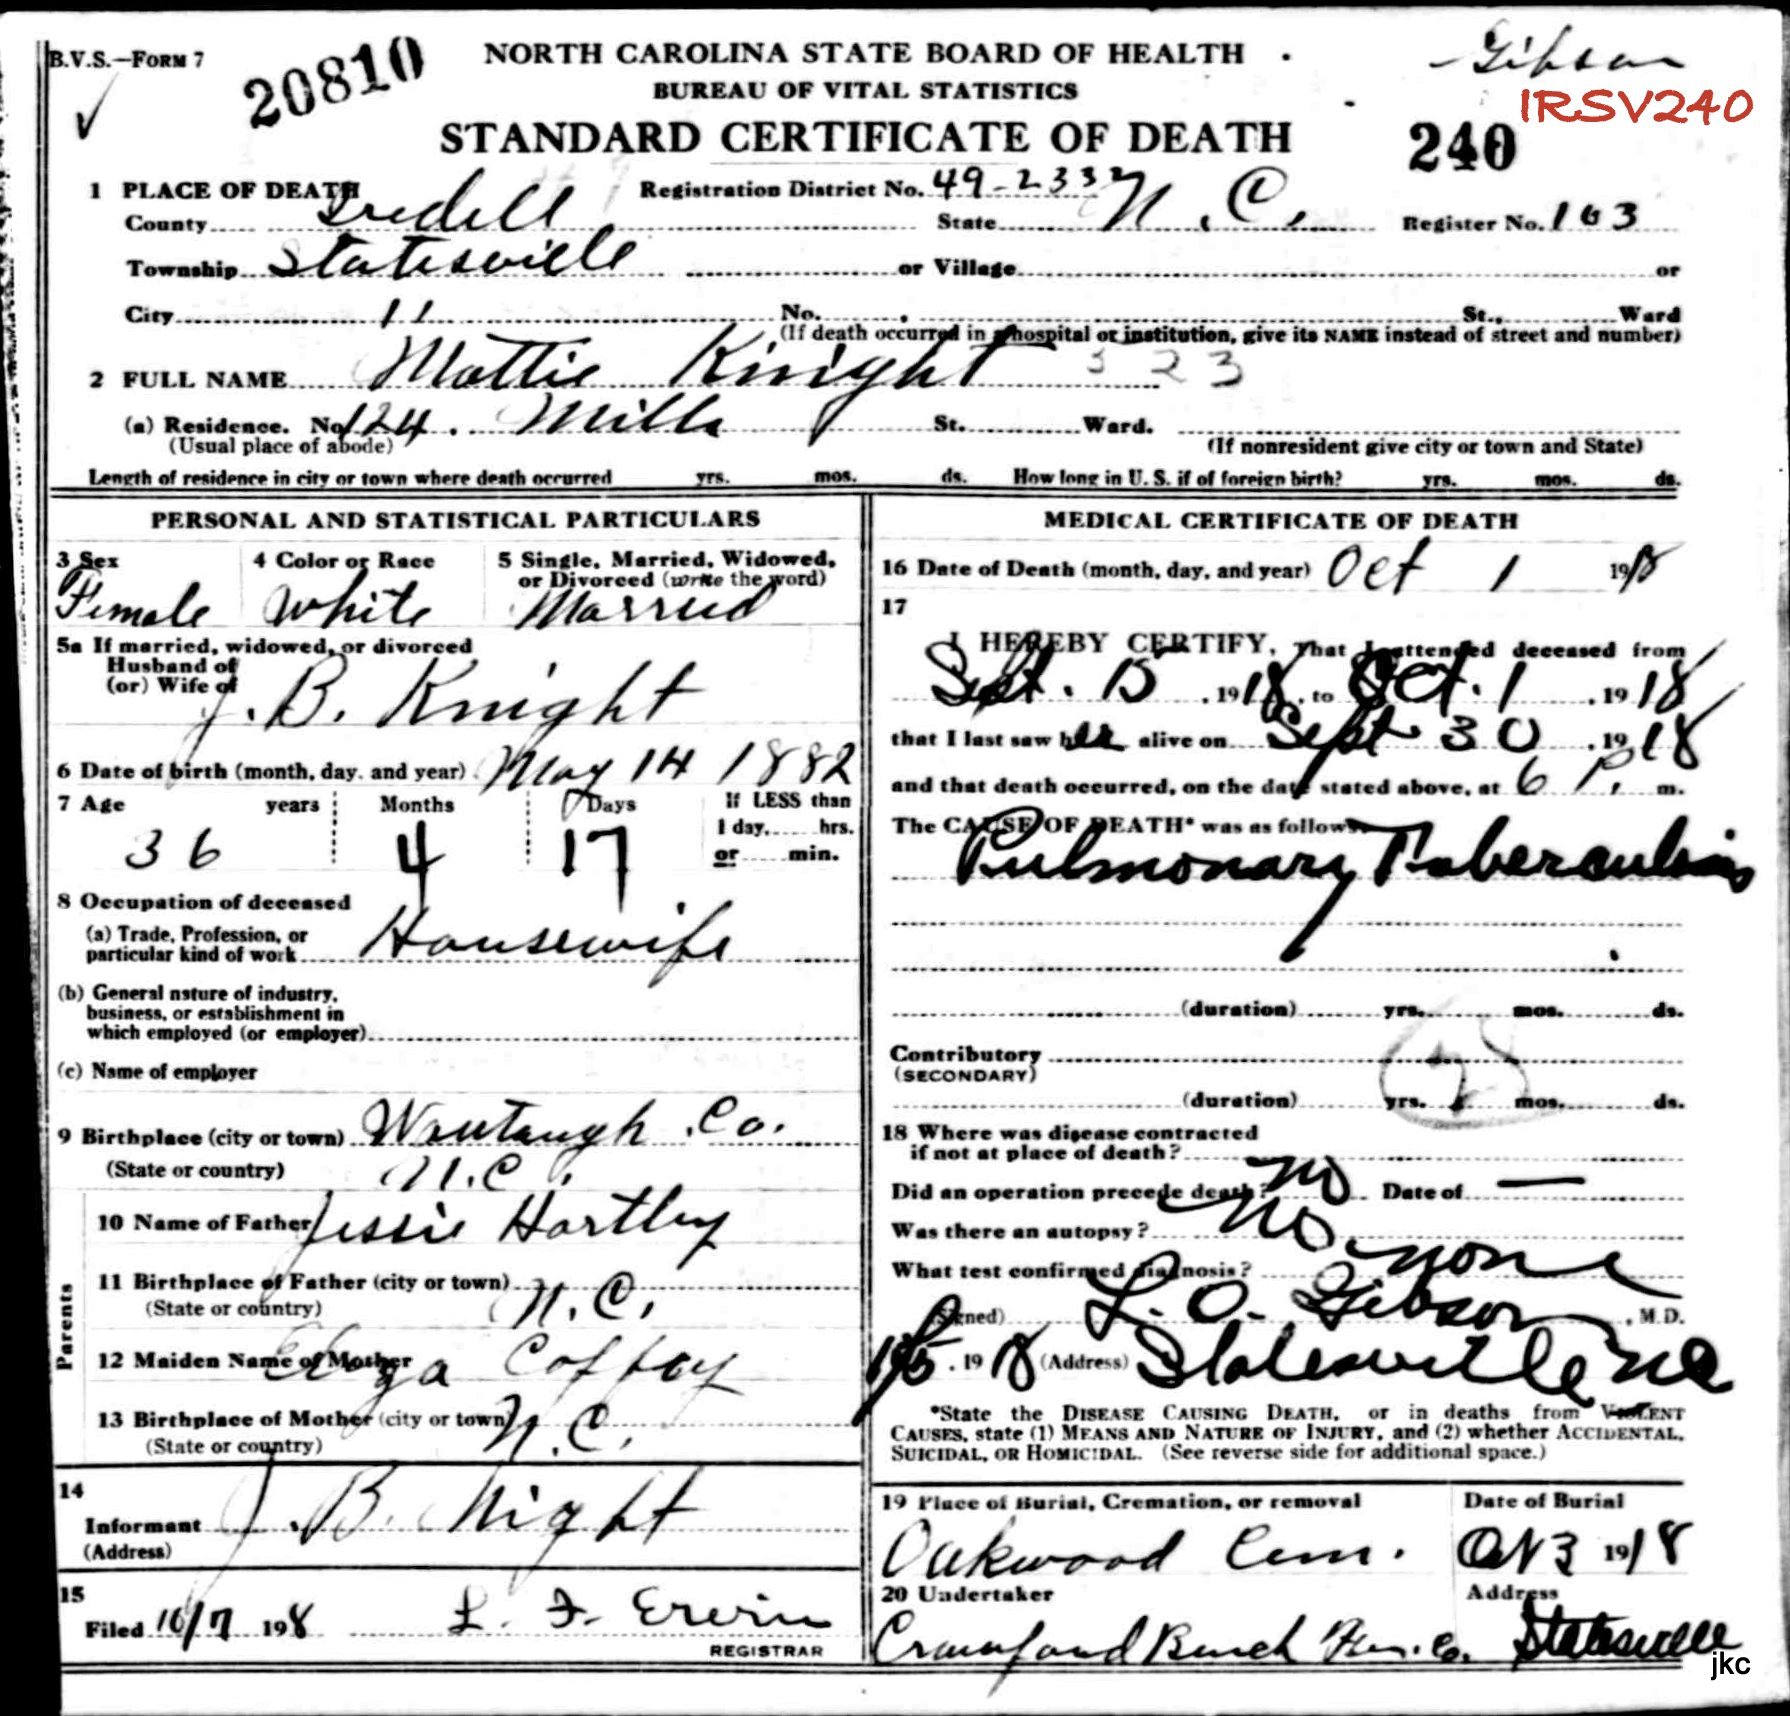 B.V.S.—FORM 7
20810
NORTH CAROLINA STATE BOARD OF HEALTH
Gibson
BUREAU OF VITAL STATISTICS
IRSV240
STANDARD CERTIFICATE OF DEATH
240
1 PLACE OF DEATH
Registration District No. 49-2332
County Iredell State N.C. Register No. 163
Township Statesville or Village or
City 11 No. St., Ward
(If death occurred in a hospital or institution, give its NAME instead of street and number)
2 FULL NAME Mattie Knight 323
(a) Residence. No. 124. Mills St. Ward.
(Usual place of abode) (If nonresident give city or town and State)
Length of residence in city or town where death occurred yrs. mos. ds. How long in U. S. if of foreign birth? yrs. mos. ds.
PERSONAL AND STATISTICAL PARTICULARS
3 Sex 4 Color or Race 5 Single, Married, Widowed,
or Divorced (write the word)
Female White Married
5a If married, widowed, or divorced
Husband of
(or) Wife of
J. B. Knight
6 Date of birth (month, day, and year) May 14 1882
7 Age years Months Days If LESS than
1 day, hrs.
36 4 17 or min.
8 Occupation of deceased
(a) Trade, Profession, or
particular kind of work Housewife
(b) General nature of industry,
business, or establishment in
which employed (or employer)
(c) Name of employer
9 Birthplace (city or town) Wautaugh Co.
(State or country) N.C.
Parents
10 Name of Father Jessie Hartley
11 Birthplace of Father (city or town)
(State or country) N.C.
12 Maiden Name of Mother Coffey
13 Birthplace of Mother (city or town)
(State or country) N.C.
14
Informant J. B. Night
(Address)
15
Filed 10/7 1918 L. F. Ervin
REGISTRAR
MEDICAL CERTIFICATE OF DEATH
16 Date of Death (month, day, and year) Oct 1 1918
17
I HEREBY CERTIFY, That I attended deceased from
Sept. 15, 1918, to Oct. 1, 1918
that I last saw her alive on Sept 30, 1918
and that death occurred, on the date stated above, at 6 P. m.
The CAUSE OF DEATH* was as follows:
Pulmonary Tuberculosis
(duration) yrs. mos. ds.
Contributory
(SECONDARY)
(duration) yrs. mos. ds.
18 Where was disease contracted
if not at place of death?
Did an operation precede death? No Date of —
Was there an autopsy? No
What test confirmed diagnosis? none
(Signed) L. O. Gibson, M.D.
, 1918 (Address) Statesville NC
*State the DISEASE CAUSING DEATH, or in deaths from VIOLENT
CAUSES, state (1) MEANS AND NATURE OF INJURY, and (2) whether ACCIDENTAL,
SUICIDAL, OR HOMICIDAL. (See reverse side for additional space.)
19 Place of Burial, Cremation, or removal Date of Burial
Oakwood Cem. Oct 3 1918
20 Undertaker Address
Crawford Bunch Fur. Co. Statesville
jkc